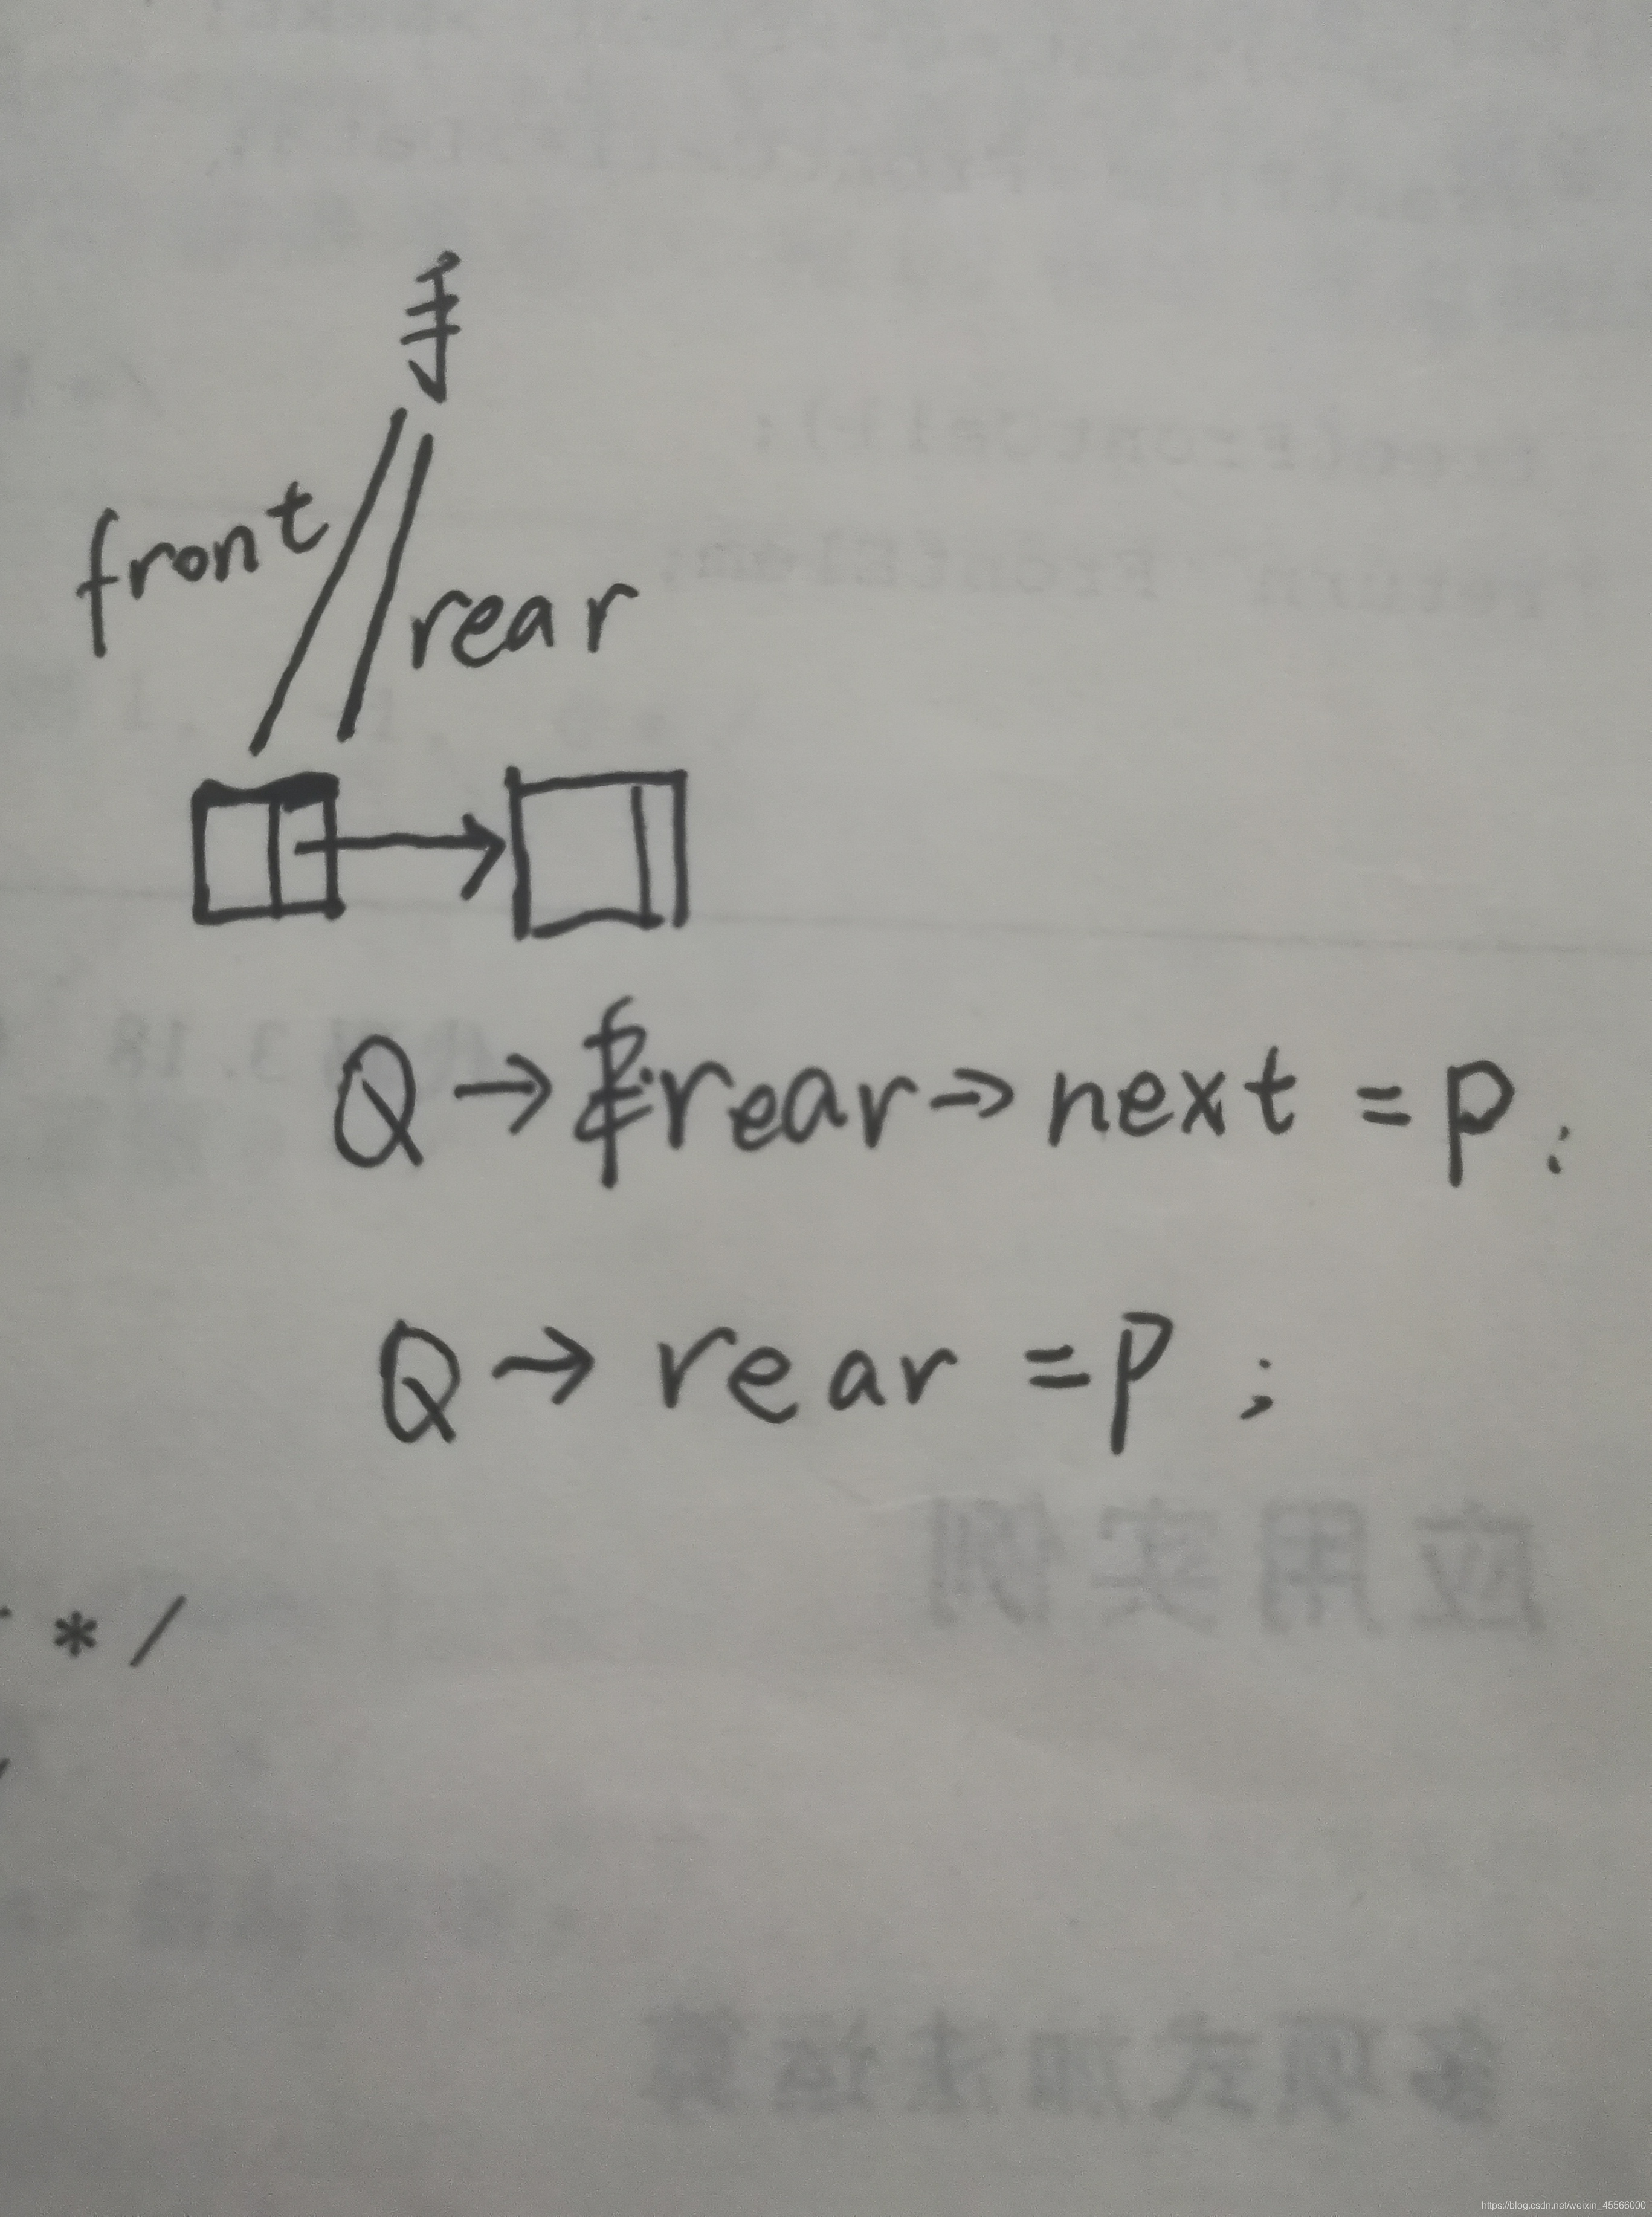 手
front
rear
Q→rear→next = P;
Q→rear = P;
应用实例
*/
多项式加法运算
https://blog.csdn.net/weixin_45566000